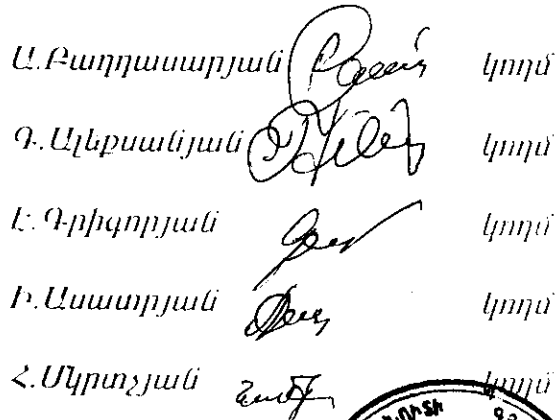 Ա.Բաղդասարյան կողմ
Գ.Ալեքսանյան կողմ
Է.Գրիգորյան կողմ
Ի.Ասատրյան կողմ
Հ.Մկրտչյան կողմ